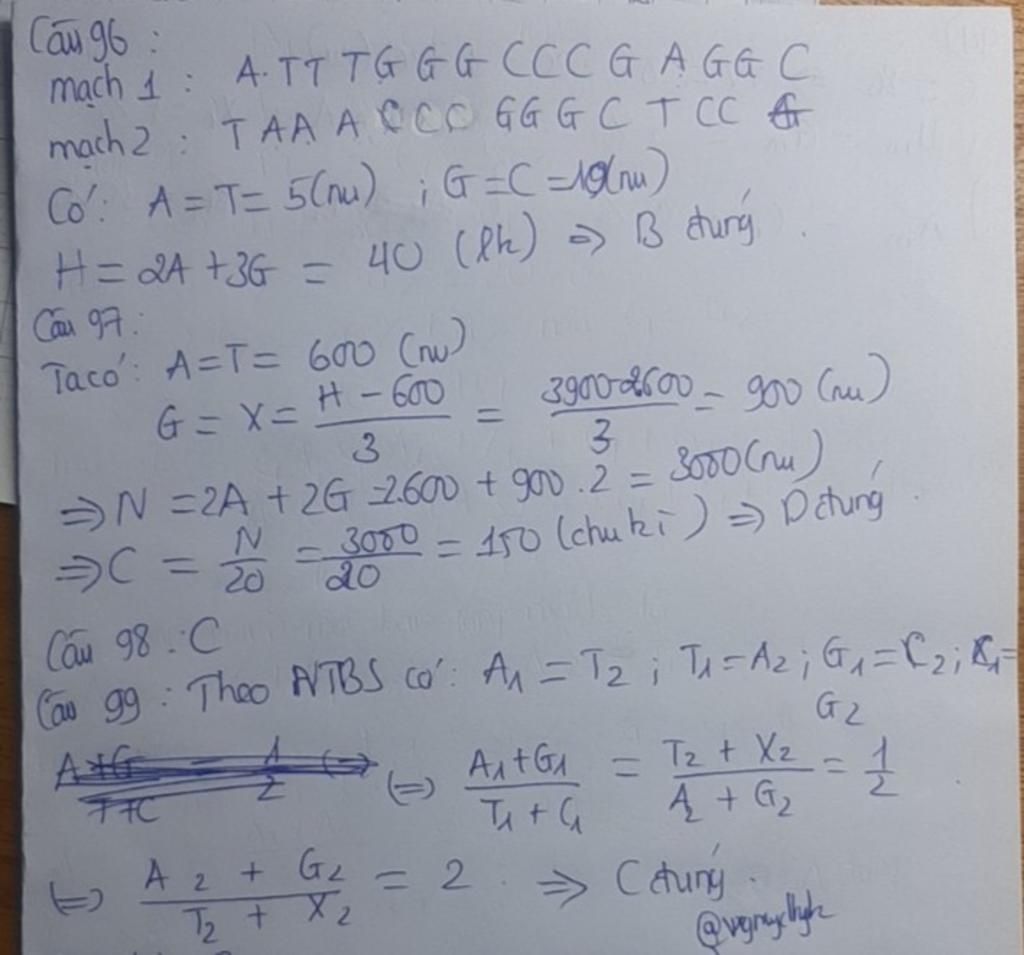 Câu 96 :
mạch 1 : A.TT TG G G CCC G A GG C
mạch 2 : T AA A C CC GG G C T CC G
Có: A = T = 5(nu) ; G = C = 10(nu)
H = 2A + 3G = 40 (lk) => B đúng .
Câu 97:
Ta có: A = T = 600 (nu)
G = X = H - 600 / 3 = 3900-2600 / 3 = 900 (nu)
=> N = 2A + 2G = 2.600 + 900 . 2 = 3000 (nu)
=> C = N / 20 = 3000 / 20 = 150 (chu kì) => D đúng .
Câu 98 : C
Câu 99 : Theo NTBS có: A1 = T2 ; T1 = A2 ; G1 = C2 ; C1 =
G2
<=> A1 + G1 / T1 + C1 = T2 + X2 / A2 + G2 = 1 / 2 .
<=> A2 + G2 / T2 + X2 = 2 . => C đúng .